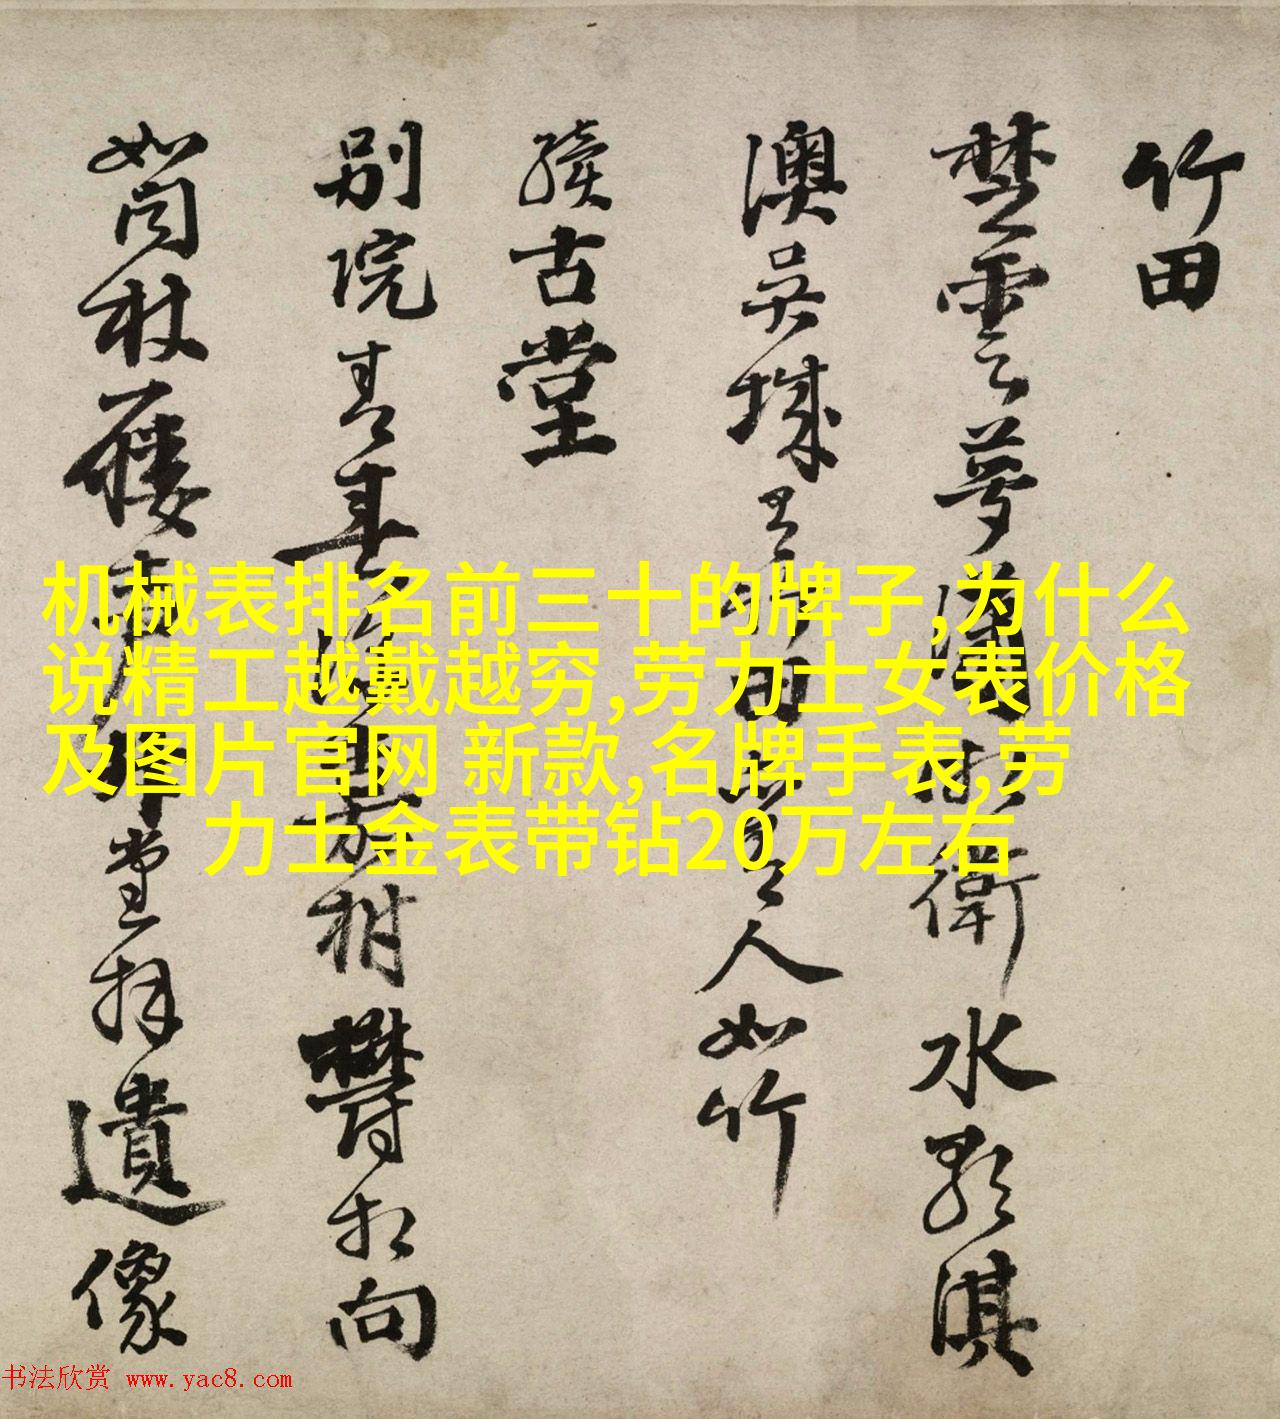 竹田
楚雲夢瀟湘衛水歌淇
澳吳城 竹田 人如竹
續古堂
别院青春深嘉樹鬱相向
如聞杖屨聲升堂拜遺像
机械表排名前三十的牌子,为什么
说精工越戴越穷,劳力士女表价格
及图片官网 新款,名牌手表,劳
力士金表带钻20万左右
书法欣赏 www.yac8.com